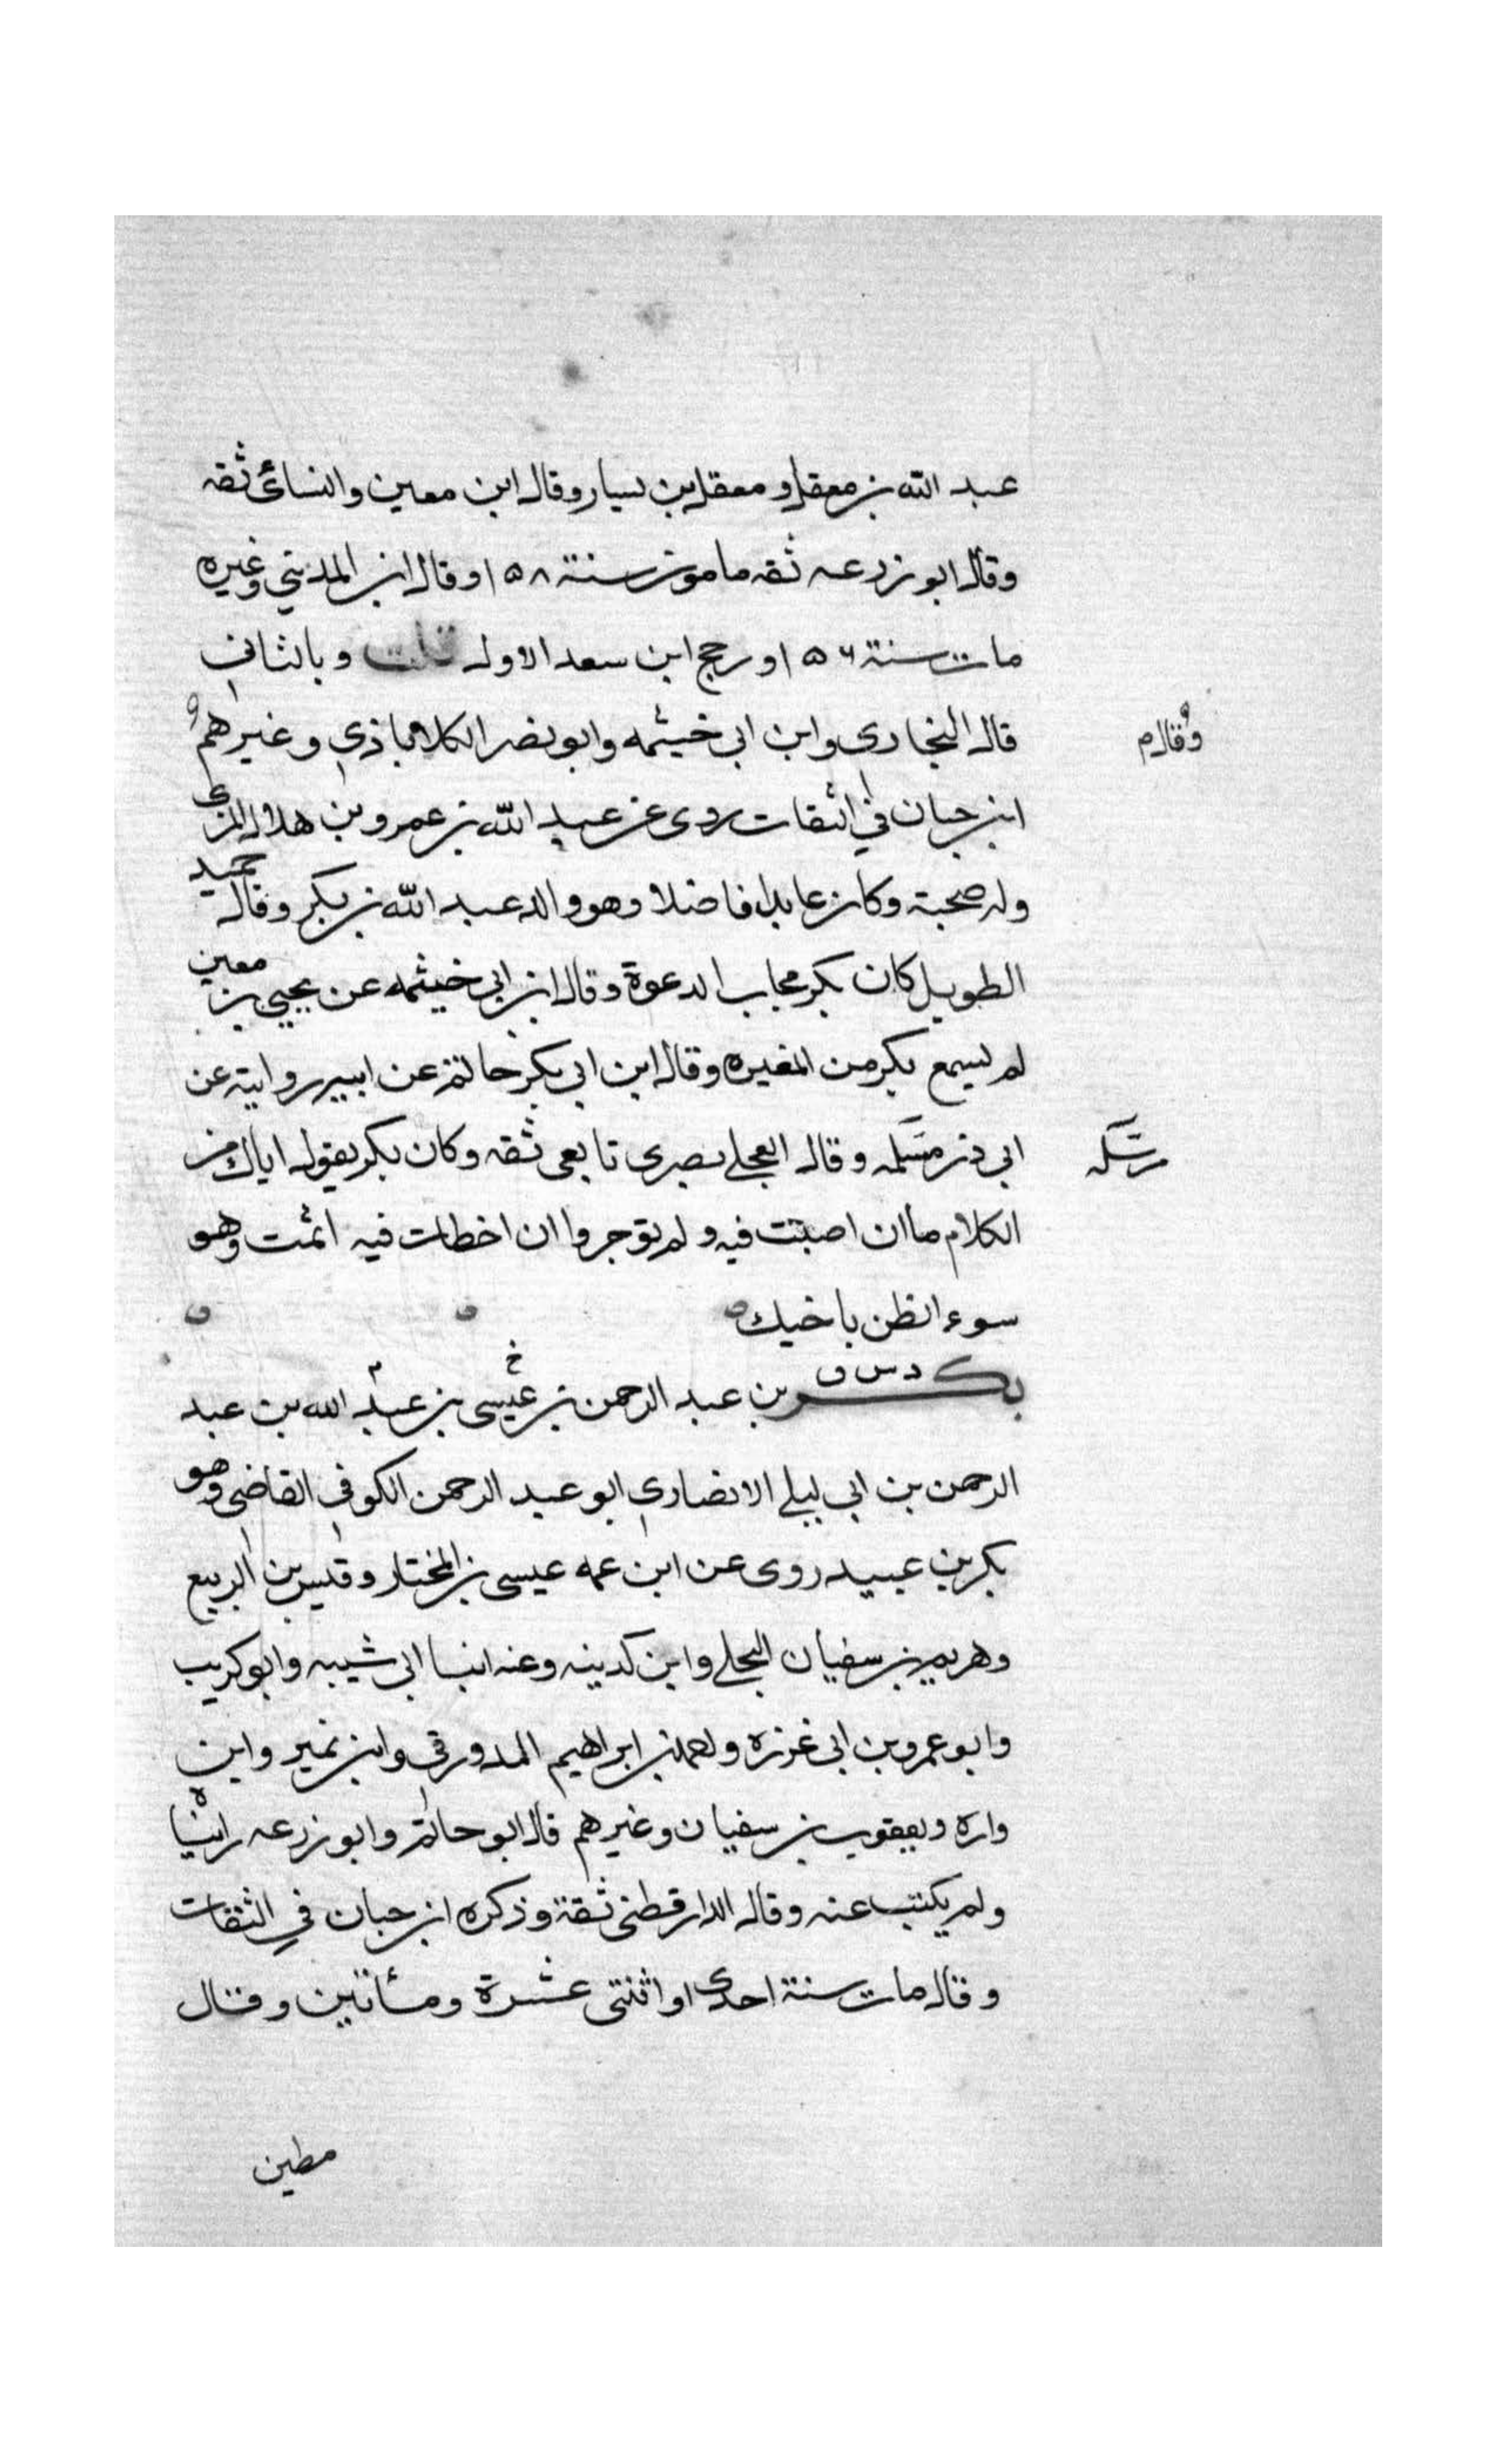 عبد الله بن معقل و معقل بن يسار وقال ابن معين والنسائى ثقه
وقال ابو زرعه ثقه مامون سنة ١٥٨ وقال ابن المديني وغيره
مات سنة ١٥٦ ورجح ابن سعد الاول قلت وبالثاني
قال البخارى وابن ابى خيثمه وابو نصر الكلاباذي وغيرهم
وقال م
ابن حبان في الثقات روى عن عبد الله بن عمرو بن هلال المزنى
وله صحبة وكان عابدا فاضلا وهو والد عبد الله بن بكر وقال حميد
الطويل كان بكر مجاب الدعوة وقال ابن ابي خيثمه عن يحيي بن معين
لم يسمع بكر من المغيره وقال ابن ابي بكر حاتم عن ابيه روايته عن
ابي ذر مرسله وقال العجلى بصرى تابعى ثقه وكان بكر يقول اياك من
مرسله
الكلام ما ان اصبت فيه ولم توجروا ان اخطات فيه اثمت وهو
سوء الظن باخيك
بكر د س ق بن عبد الرحمن بن عيسى بن عبد الله بن عبد
خ م
الرحمن بن ابي ليلى الانصاري ابو عبد الرحمن الكوفي القاضى وهو
بكر بن عبيد روى عن ابن عمه عيسى بن المختار وقيس بن الربيع
وهريم بن سفيان البجلى وابن كدينه وعنه ابنا ابي شيبه وابو كريب
وابو عمرو بن ابى غرزه واحمد بن ابراهيم الدورقي وابن نمير وابن
واره ويعقوب بن سفيان وغيرهم قال ابو حاتم وابو زرعه رايناه
ولم يكتب عنه وقال الدارقطنى ثقة وذكره ابن حبان في الثقات
وقال مات سنة احدى او اثنتى عشرة ومئاتين وقال
مطين